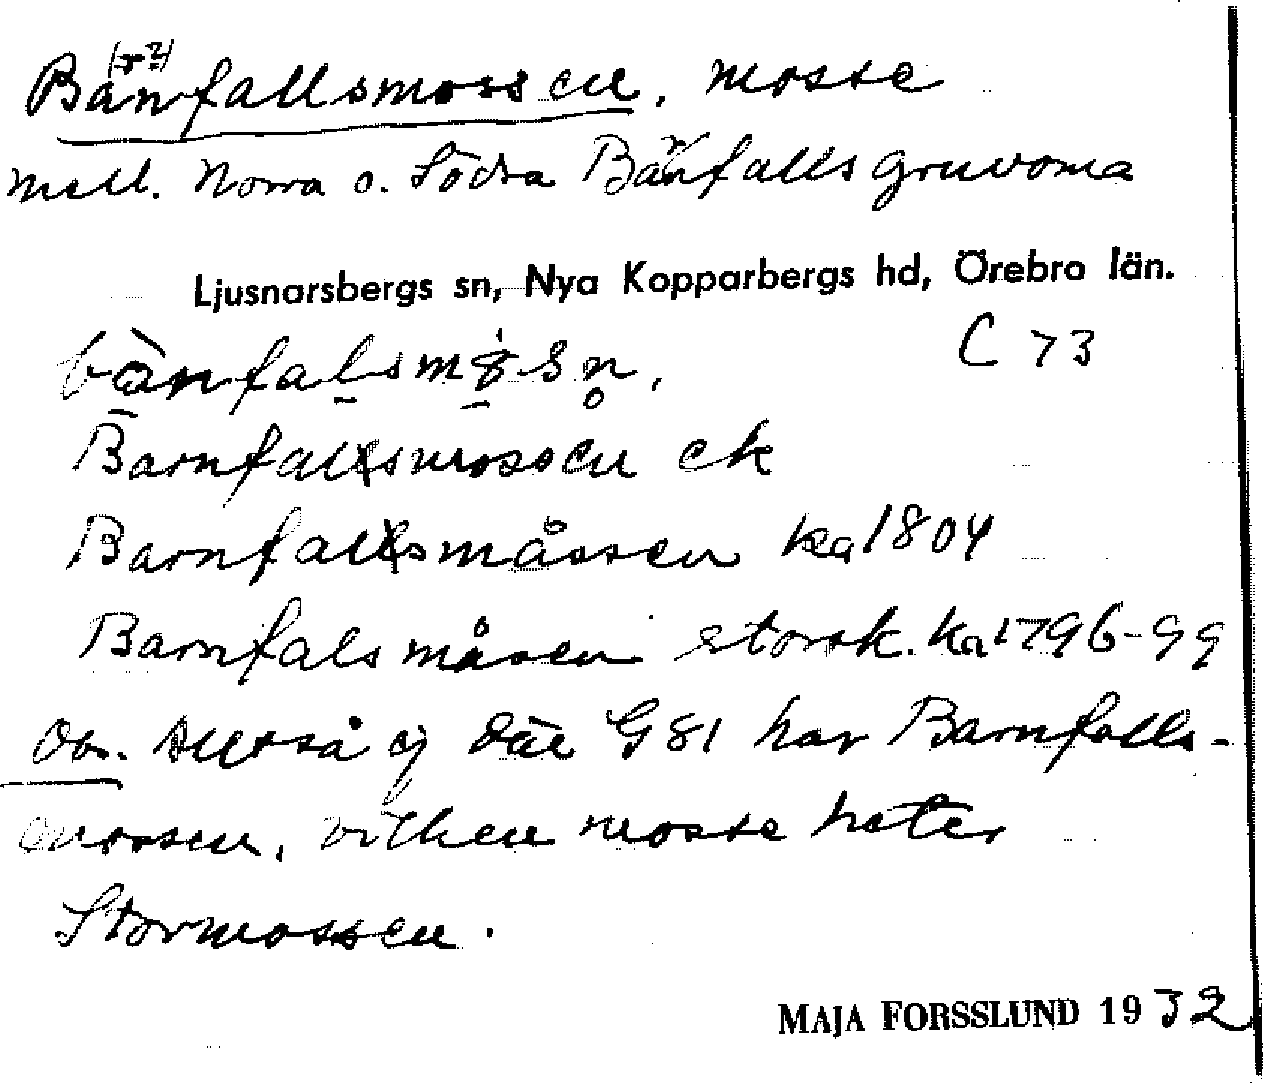 (r?)
Bänfallsmossen, mosse
mell. Norra o. Södra Bänfallsgruvorna
Ljusnarsbergs sn, Nya Kopparbergs hd, Örebro län.
C 73
Barnfallsmossen ek
Barnfallsmåssen ka 1804
Barnfalsmåsen storsk. ka 1796-99
Obs. Alltså ej där G 81 har Barnfalls-
mossen, vilken mosse heter
Stormossen.
MAJA FORSSLUND 1932